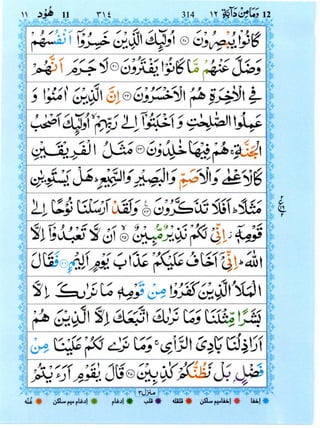 ١١ هُوْد 11 ٣١٤ 314 وَمَا مِنْ دَآبَّة ١٢ 12
كَانُوْا يُبْصِرُوْنَ ۝٢٠ اُولٰٓئِكَ الَّذِيْنَ خَسِرُوْٓا اَنْفُسَهُمْ
وَضَلَّ عَنْهُمْ مَّا كَانُوْا يَفْتَرُوْنَ ۝٢١ لَا جَرَمَ اَنَّهُمْ
فِي الْاٰخِرَةِ هُمُ الْاَخْسَرُوْنَ ۝٢٢ اِنَّ الَّذِيْنَ اٰمَنُوْا وَ
عَمِلُوا الصّٰلِحٰتِ وَ اَخْبَتُوْٓا اِلٰى رَبِّهِمْ ۙ اُولٰٓئِكَ اَصْحٰبُ
الْجَنَّةِ ۚ هُمْ فِيْهَا خٰلِدُوْنَ ۝٢٣ مَثَلُ الْفَرِيْقَيْنِ
كَالْاَعْمٰى وَالْاَصَمِّ وَالْبَصِيْرِ وَالسَّمِيْعِ ؕ هَلْ يَسْتَوِيٰنِ
مَثَلًا ؕ اَفَلَا تَذَكَّرُوْنَ ۝٢٤ وَلَقَدْ اَرْسَلْنَا نُوْحًا اِلٰى
قَوْمِهٖٓ ؗ اِنِّيْ لَكُمْ نَذِيْرٌ مُّبِيْنٌ ۝٢٥ اَنْ لَّا تَعْبُدُوْٓا اِلَّا
اللّٰهَ ؕ اِنِّيْٓ اَخَافُ عَلَيْكُمْ عَذَابَ يَوْمٍ اَلِيْمٍ ۝٢٦ فَقَالَ
الْمَلَاُ الَّذِيْنَ كَفَرُوْا مِنْ قَوْمِهٖ مَا نَرٰىكَ اِلَّا
بَشَرًا مِّثْلَنَا وَمَا نَرٰىكَ اتَّبَعَكَ اِلَّا الَّذِيْنَ هُمْ
اَرَاذِلُنَا بَادِيَ الرَّاْيِ ۚ وَمَا نَرٰى لَكُمْ عَلَيْنَا مِنْ
فَضْلٍۭ بَلْ نَظُنُّكُمْ كٰذِبِيْنَ ۝٢٧ قَالَ يٰقَوْمِ اَرَءَيْتُمْ
منزل ٣
اخفا اخفا میم ساکن قلقله قلب ادغام ادغام میم ساکن غنّه